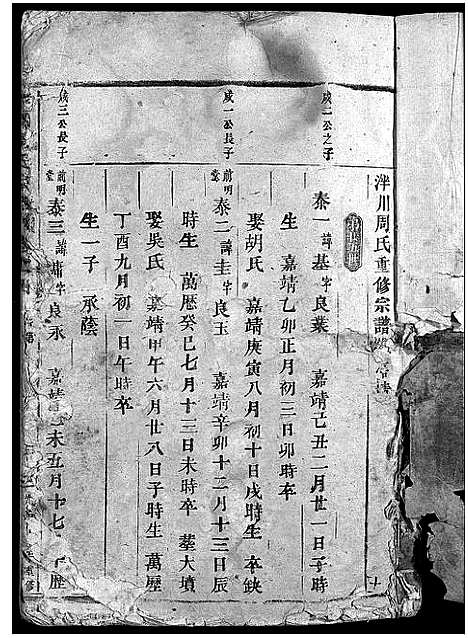 泮川周氏重修宗譜
成二公之子
泰一 諱基字良業 嘉靖己丑二月廿一日子時
生 嘉靖乙卯正月初三日卯時卒
娶胡氏 嘉靖庚寅八月初十日戌時生 卒缺
成一公長子
前明 泰二 諱圭字良玉 嘉靖辛卯十二月十三日辰
時生 萬歷癸巳七月十三日未時卒 葬大墳
娶吳氏 嘉靖甲午六月廿八日子時生 萬歷
丁酉九月初一日午時卒
生一子 承蔭
成三公長子
前明堂 泰三 諱庸字良永 嘉靖 未五月十七 子 歷